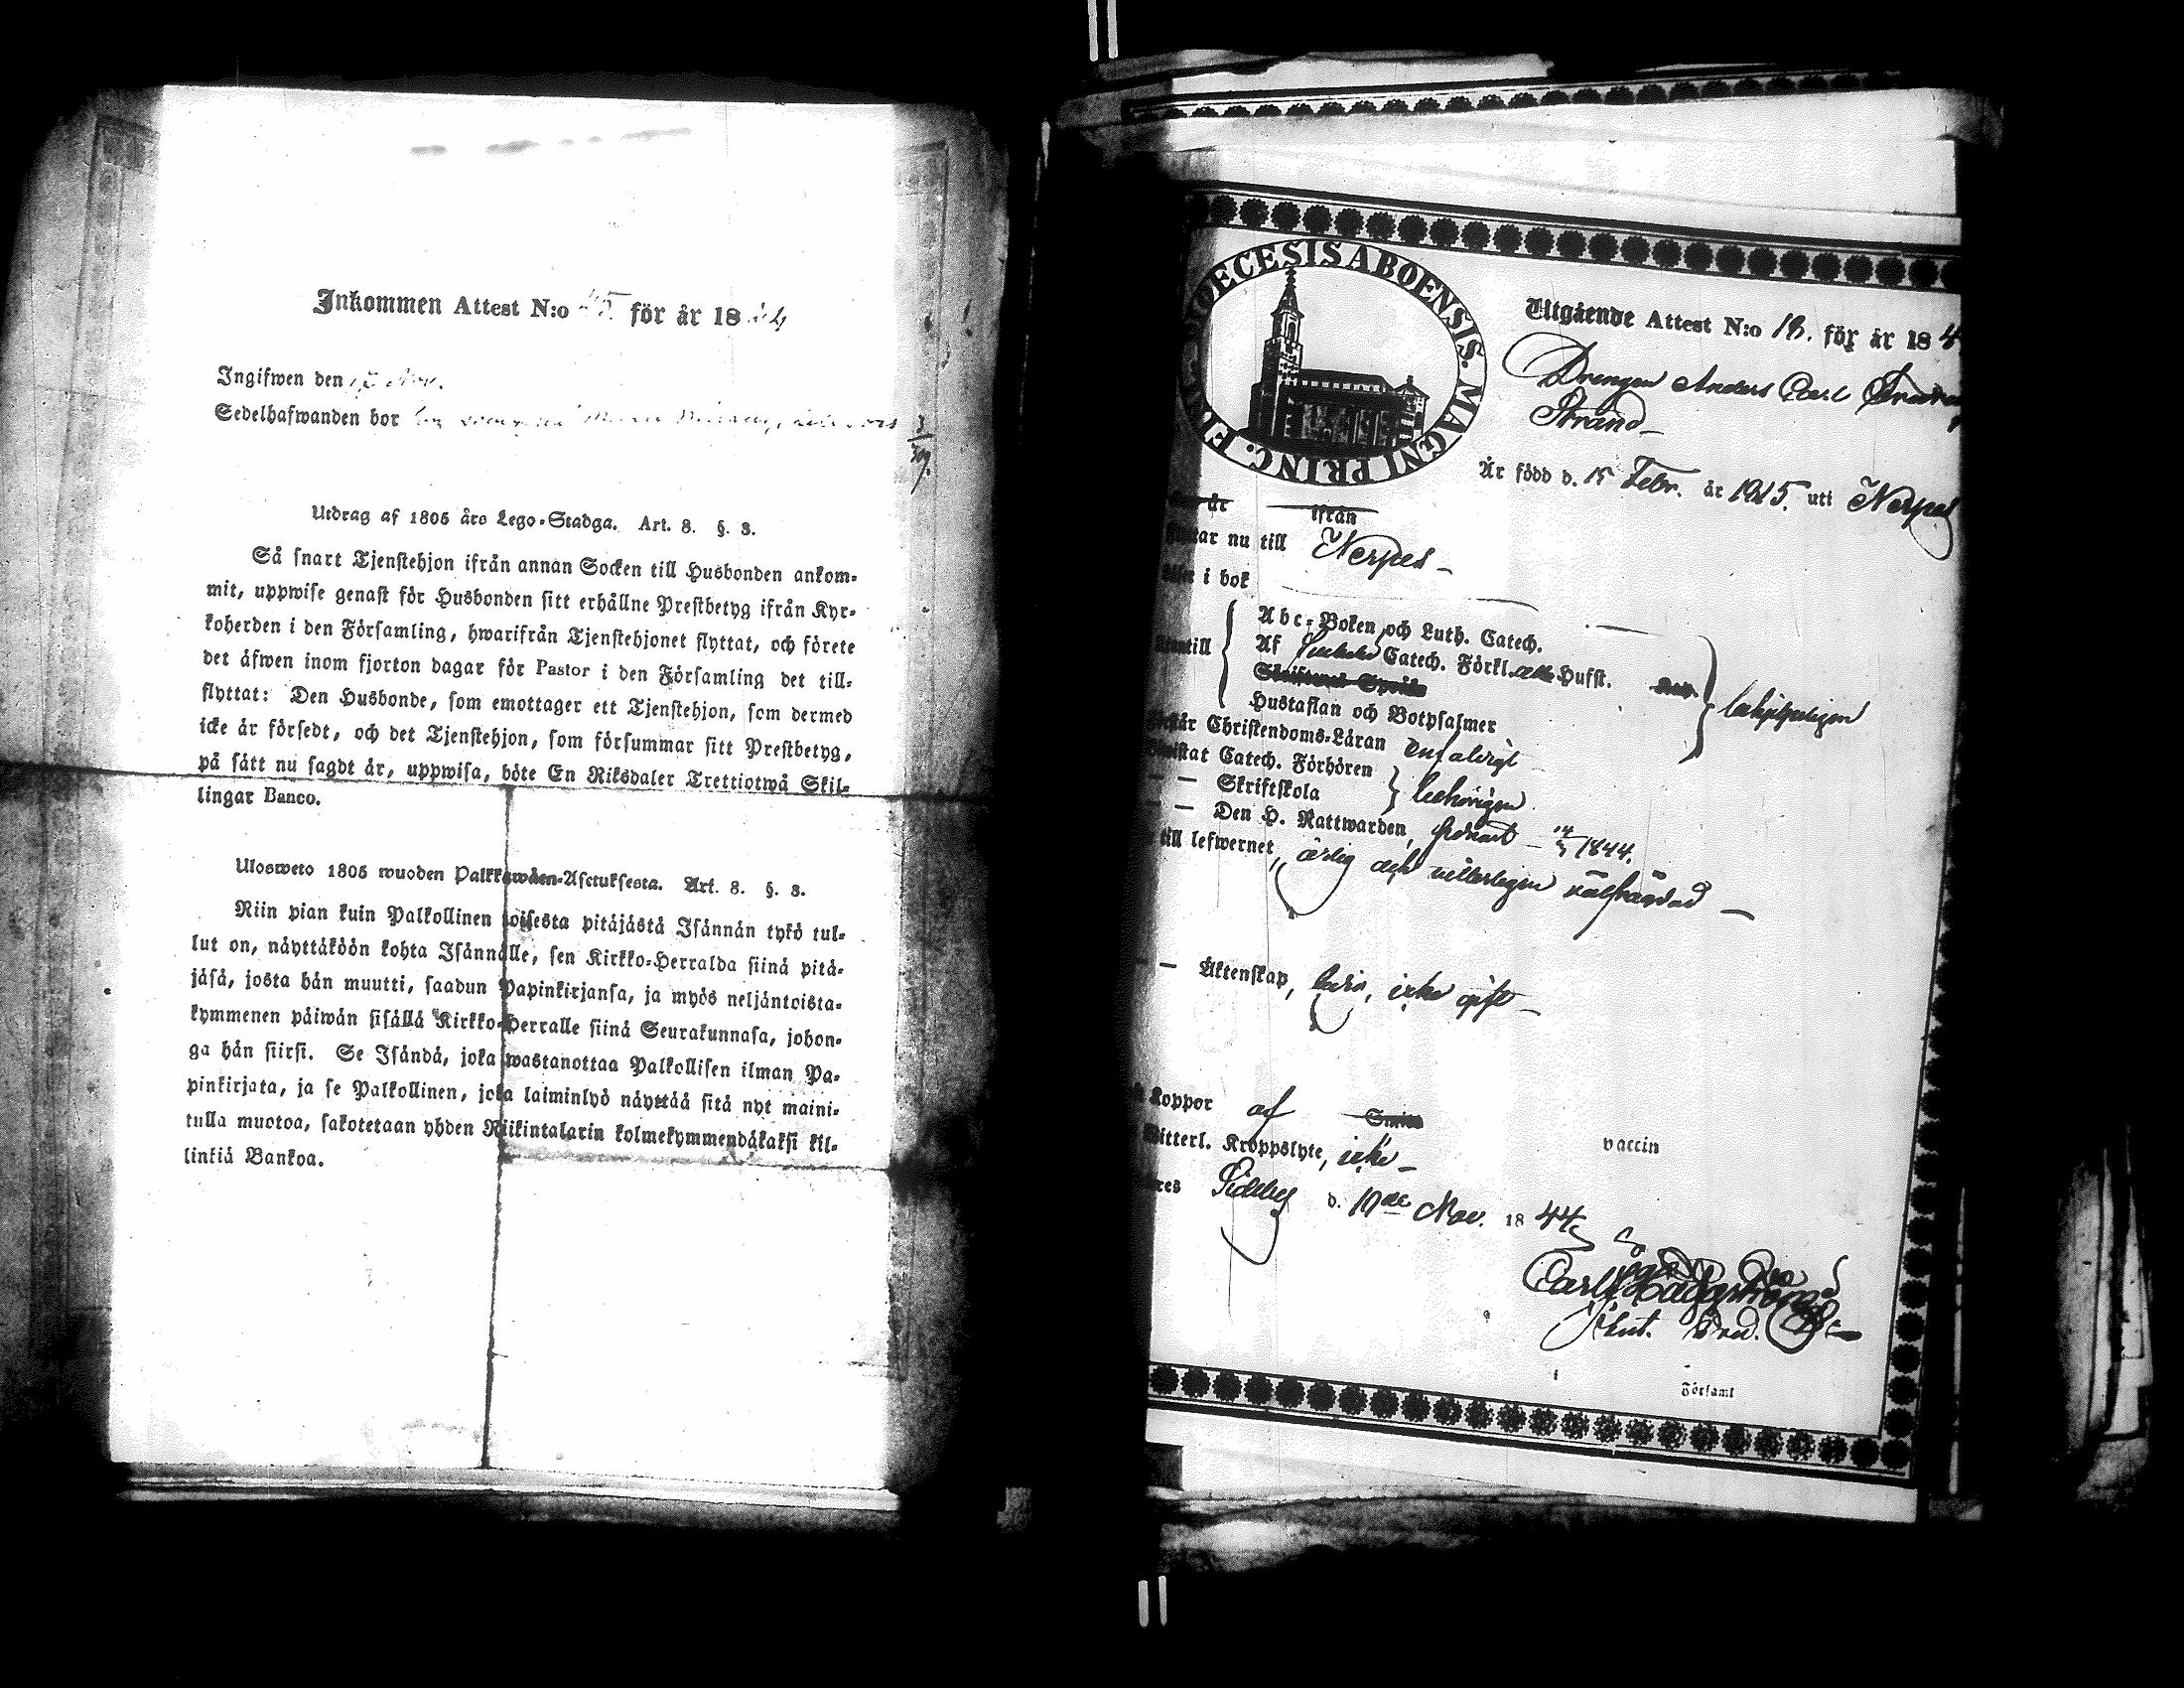 Inkommen Attest N:o 45. för år 1844
Ingifwen den
Sedelhafwanden bor
Utdrag af 1805 års Lego-Stadga. Art. 8. §. 3.
Så snart Tjenstehjon ifrån annan Socken till Husbonden ankom-
mit, uppwise genast för Husbonden sitt erhållne Prestbetyg ifrån Kyr-
koherden i den Församling, hwarifrån Tjenstehjonet flyttat, och förete
det äfwen inom fjorton dagar för Pastor i den Församling det till-
flyttat: Den Husbonde, som emottager ett Tjenstehjon, som dermed
icke är försedt, och det Tjenstehjon, som försummar sitt Prestbetyg,
på sätt nu sagdt är, uppwisa, böte En Riksdaler Trettiotwå Skil-
lingar Banco.
Ulosweto 1805 wuoden Palkkawäen-Asetuksesta. Art. 8. §. 3.
Niin pian kuin Palkollinen toisesta pitäjästä Isännän tykö tul-
lut on, näyttäköön kohta Isännälle, sen Kirkko-Herralda siinä pitä-
jäsä, josta hän muutti, saadun Papinkirjansa, ja myös neljäntoista-
kymmenen päiwän sisällä Kirkko-Herralle siinä Seurakunnasa, johon-
ga hän siirsi. Se Isändä, joka wastanottaa Palkollisen ilman Pa-
pinkirjata, ja se Palkollinen, joka laiminlyö näyttää sitä nyt maini-
tulla muotoa, sakotetaan yhden Riikintalarin kolmekymmendäkaksi kil-
linkiä Bankoa.
DIOECESIS ABOENSIS. MAGNI PRINC.
Utgående Attest N:o 18. för år 184
Drengen Anders Carl
Strand
Är född d. 15 Febr. år 1825. uti Nerpes
ifrån
nu till Nerpes
i bok
Abc-Boken och Luth. Catech.
Af Catech. Förkl. Hufst.
Skriftenes Språk
Hustaflan och Botpsalmer
Christendoms-Läran enfaldigt
Catech. Förhören
— — Skriftskola behörigen
— — Den H. Nattwarden, 1844.
till lefwernet, ärlig och välfrägdad
— Äktenskap, ledig, icke
Koppor af vaccin
Witterl. Kroppslyte, icke
Sideby d. 10de Nov. 1844
Carl Häggström
i Församl